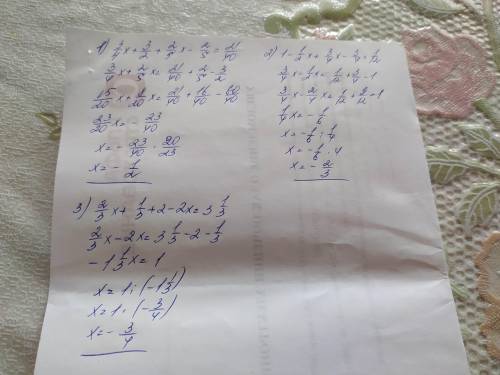 1) 3/4x+3/2+2/5x-2/5=21/40
3/4x+2/5x=21/40+2/5-3/2
15/20x+8/20x=21/40+16/40-60/40
23/20x=-23/40
x=-23/40·20/23
x=-1/2
2) 1-1/2x+3/4x-3/4=1/12
3/4x-1/2x=1/12+3/4-1
3/4x-2/4x=1/12+9/12-1
1/4x=-1/6
x=-1/6:1/4
x=-1/6·4
x=-2/3
3) 2/3x+1/3+2-2x=3 1/3
2/3x-2x=3 1/3-2-1/3
-1 1/3x=1
x=1:(-1 1/3)
x=1·(-3/4)
x=-3/4